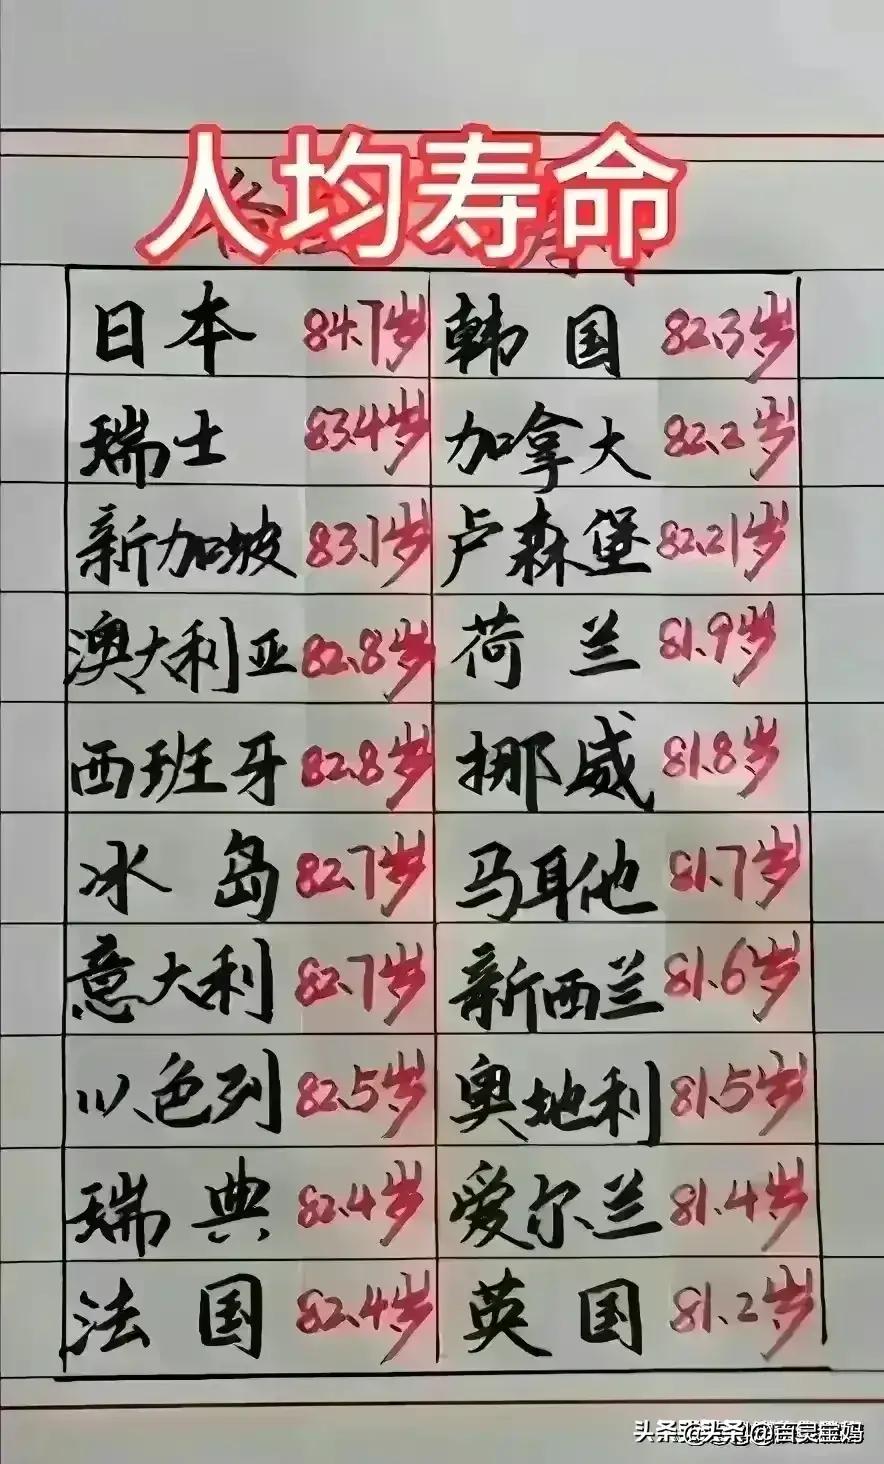 人均寿命
日本 84.7岁 韩国 82.3岁
瑞士 83.4岁 加拿大 82.2岁
新加坡 83.1岁 卢森堡 82.21岁
澳大利亚 82.8岁 荷兰 81.9岁
西班牙 82.8岁 挪威 81.8岁
冰岛 82.7岁 马耳他 81.7岁
意大利 82.7岁 新西兰 81.6岁
以色列 82.5岁 奥地利 81.5岁
瑞典 82.4岁 爱尔兰 81.4岁
法国 82.4岁 英国 81.2岁
头条 头条